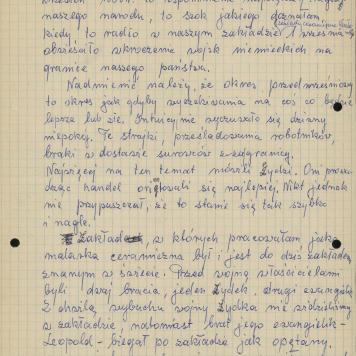 naszego narodu, to szok jakiego doznałam
kiedy to radio w naszym zakładzie 1 września
obwieściło wkroczenie wojsk niemieckich na
granice naszego państwa.
Nadmienić należy, że okres przedwrześniowy
to okres jak gdyby wyczekiwania na coś co będzie
lepsze lub złe. Intuicyjnie wyczuwało się dziwny
niepokój. Te strajki, prześladowania robotników,
braki w dostawie surowców z zagranicy.
Najwięcej na ten temat mówili Żydzi. Oni prowa-
dząc handel orientowali się najlepiej. Nikt jednak
nie przypuszczał, że to stanie się tak szybko
i nagle.
Zakład, w których pracowałam jako
malarka ceramiczna był i jest do dziś zakładem
znanym w świecie. Przed wojną właścicielami
byli dwaj bracia, jeden Żydek, drugi ewangelik
Z chwilą wybuchu wojny Żydka nie widzieliśmy
w zakładzie, natomiast brat jego ewangelik -
Leopold - biegał po zakładzie jak opętany.